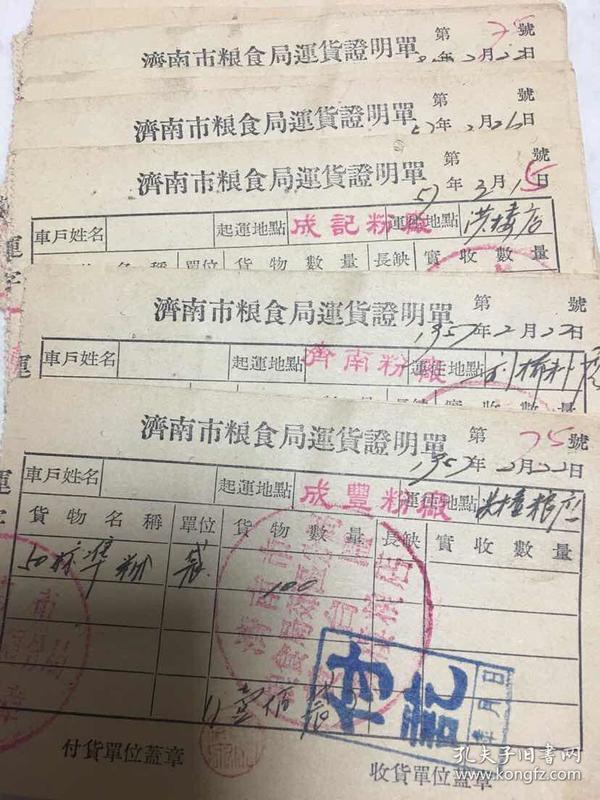 第 75 號
濟南市粮食局運貨證明單
年2月22日
第 號
濟南市粮食局運貨證明單
57年2月26日
第 號
濟南市粮食局運貨證明單
57年3月15日
車戶姓名 起運地點 成記粉廠 運往地點 洪樓店
名稱 單位 貨物數量 長缺 實收數量
第 號
濟南市粮食局運貨證明單
1957年2月22日
車戶姓名 起運地點 濟南粉廠 運往地點
第 75 號
濟南市粮食局運貨證明單
1957年2月22日
車戶姓名 起運地點 成豐粉廠 運往地點
貨物名稱 單位 貨物數量 長缺 實收數量
50標準粉 袋 100
壹佰袋
付訖
年月日
付貨單位蓋章 收貨單位蓋章
孔夫子旧书网
www.kongfz.com